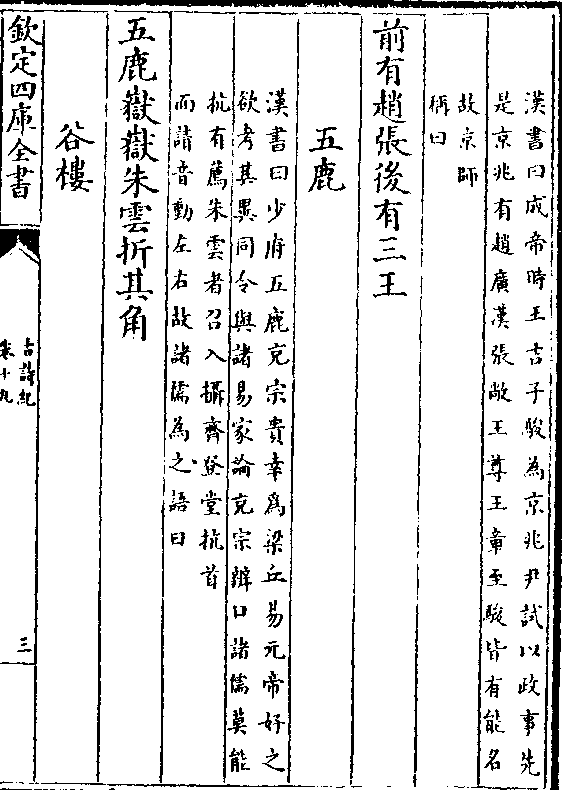 漢書曰成帝時王吉子駿為京兆尹試以政事先
是京兆有趙廣漢張敞王尊王章至駿皆有能名
故京師
稱曰
前有趙張後有三王
五鹿
漢書曰少府五鹿充宗貴幸為梁丘易元帝好之
欲考其異同令與諸易家論充宗辯口諸儒莫能
抗有薦朱雲者召入攝齊登堂抗首
而請音動左右故諸儒為之語曰
五鹿嶽嶽朱雲折其角
谷樓
欽定四庫全書
古詩紀
卷十九
三